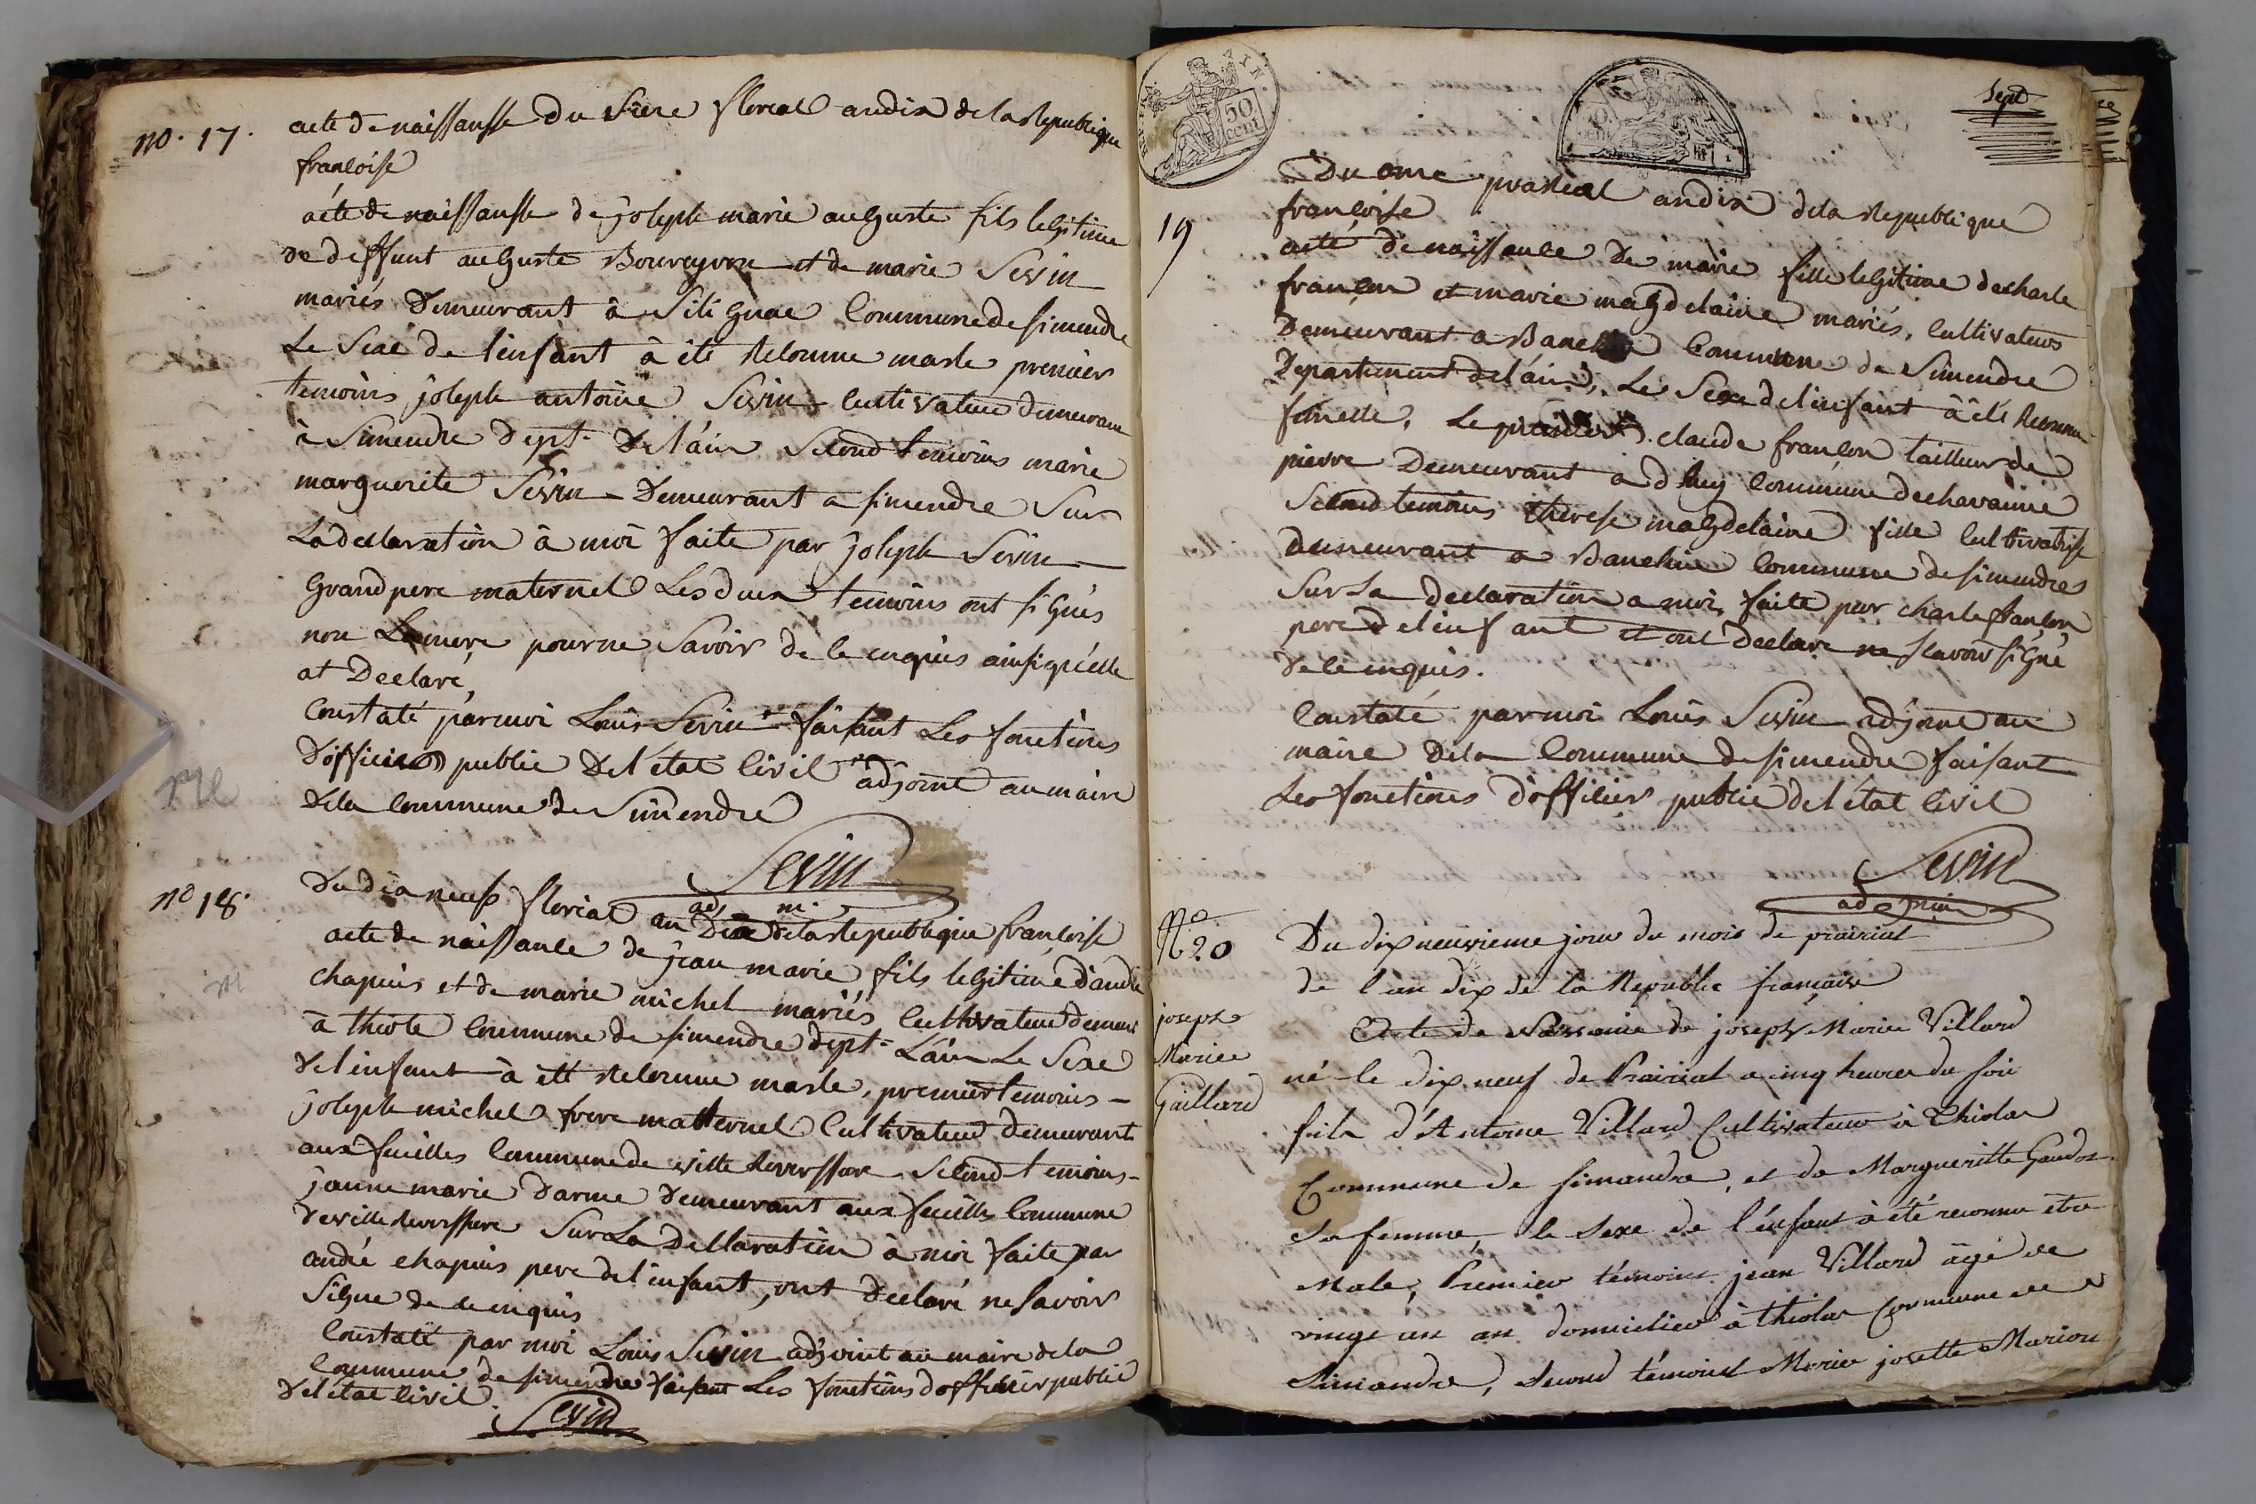 no. 17.
acte de naissansse du siere floreal an dix de la Republique
françoise
acte de naissansse de joseph marie auguste fils legitime
de deffunt auguste Boureyron et de marie Sevin
mariés Demeurant à Silignac Commune de simendre
Le Sexe de l'enfant à été Reconnue masle premier
temoins joseph antoine Sevin cultivateur demeurant
à Simendre dept. De l'ain Second temoins marie
marguerite Sevin Demeurant a simendre Sur
La declaration à moi faite par joseph Sevin
Grand pere maternel Les deux temoins ont signés
non La mere pour ne Savoir de ce enquis ainsi qu'elle
at Declaré,
Constaté par moi Louis Sevin faisant Les fonctions
D'officier public De l'état Civil adjoint au maire
de la Commune de Simendre
Sevin
adj m.
no 18.
du dix neuf floreal an Dix de la Republique françoise
acte de naissance de jean marie fils legitime d'andré
chapuis et de marie michel mariés Cultivateur demeurt
à thiole Commune de simendre dept. L'ain Le Sexe
de l'enfant à été Reconnue masle, premier temoins
joseph michel frere matternel Cultivateur Demeurant
aux feuilles Commune de ville Reverssure Second temoins
jeanne marie darme demeurant aux feuilles Commune
de ville Reverssure Sur La Declaration à moi faite par
andré chapuis pere de l'enfant, ont declaré ne Savoir
Signe de ce enquis
Constaté par moi Louis Sevin adjoint au maire de la
Commune de simendre faisant Les fonctions d'officier public
de l'état Civil.
Sevin
50 cent
sept
19
Du onze prarial an dix de la Republique
françoise
acte de naissance de marie fille legitime de charle
françon et marie magdelaine mariés, Cultivateurs
Demeurant a Banchin Commune de Simendre
Departement de l'ain, Le Sexe de l'enfant à été Reconnu
fimelle, Le premier claude françon tailleur de
pierre Demeurant a Commune de chavanne
Second temoins therese magdelaine fille Cultivatrise
demeurant a Banchin Commune de simendre
Sur La declaration a moi, faite par charle françon
pere de l'enfant et ont declare ne scavoir signé
de ce enquis.
Constaté par moi Louis Sevin adjoint au
maire de la Commune de simendre faisant
Les fonctions d'officier public de l'état Civil
Sevin
adjoint
No 20
joseph
Marie
Gaillard
Du dix neuvieme jour du mois de prairial
de l'an dix de la Republic française
Acte de Naissance de joseph Marie Villard
né le dix neuf de Prairial a cinq heures du soir
fils d'Antoine Villard Cultivateur à Thiolas
Commune de simandre, et de Margueritte Gaudoz
sa femme, le sexe de l'énfant à été reconnu etre
Male, Premier témoins jean Villard âgé de
vingt un an domicilier à thiolas Commune de
Simandre, Second témoins Marie josette Marion